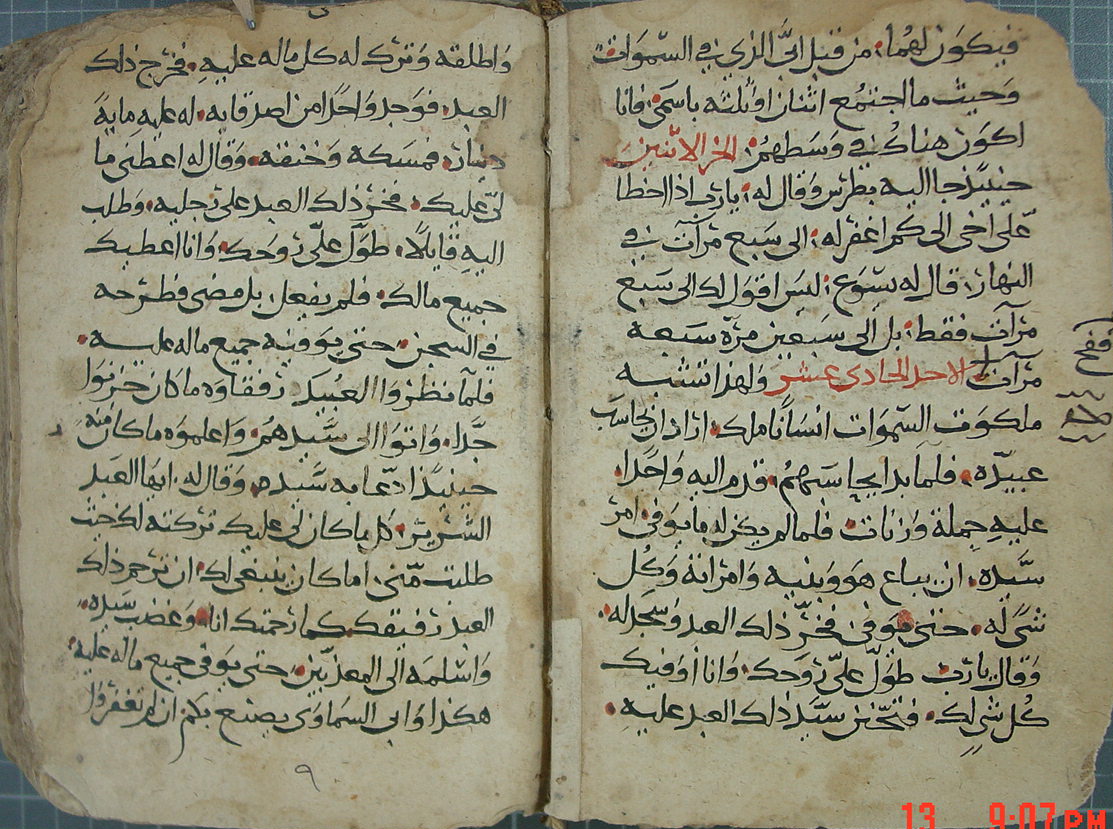 فيكون لهما: من قبل ابي الذي في السموات
وحيث ما اجتمع اثنان او ثلثه باسمي فانا
اكون هناك في وسطهم: اخر الاثنين
حينيذ جا اليه بطرس وقال له: يارب اذا اخطا
علي اخي الى كم اغفر له: الى سبع مرات في
النهار: قال له يسوع: ليس اقول لك الى سبع
مرات فقط: بل الى سبعين مره سبعه
مرات الاحد الحادي عشر ولهذا تشبه
ملكوت السموات انسانا ملك: اراد ان يحاسب
عبيده. فلما بدا يحاسبهم. قدم اليه واحدا.
عليه جملة وزنات فلما لم يكن له ما يوفي امر
سيده. ان يباع هو وبنيه وامراته وكل
شي له. حتى يوفي فخر ذلك العبد وسجد له.
وقال يارب طول علي روحك. وانا اوفيك
كل شي لك. فتحنن سيد ذلك العبد عليه.
واطلقه وترك له كل ماله عليه. فخرج ذلك
العبد. فوجد واحدا من اصدقايه. له عليه مايه
دينار. فمسكه وخنقه. وقال له اعطني ما
لي عليك. فخر ذلك العبد على رجليه. وطلب
اليه قايلا. طول علي روحك. وانا اعطيك
جميع مالك. فلم يفعل. بل مضى فطرحه
في السجن. حتى يوفيه جميع ماله عليه.
فلما نظروا العبيد رفقاوه ما كان حزنوا
جدا. واتوا الى سيدهم. واعلموه ما كان منه
حينيذا دعا به سيده. وقال له. ايها العبد
الشرير. كل ما كان لي عليك تركته لك حيث
طلبت مني. اما كان ينبغي لك. ان ترحم ذلك
العبد رفيقك كما رحمتك انا. وغضب سيده.
واسلمه الى المعذبين. حتى يوفي جميع ماله عليه.
هكذا وابي السماوي يصنع بكم ان لم تغفروا
٩
13 9:07 PM